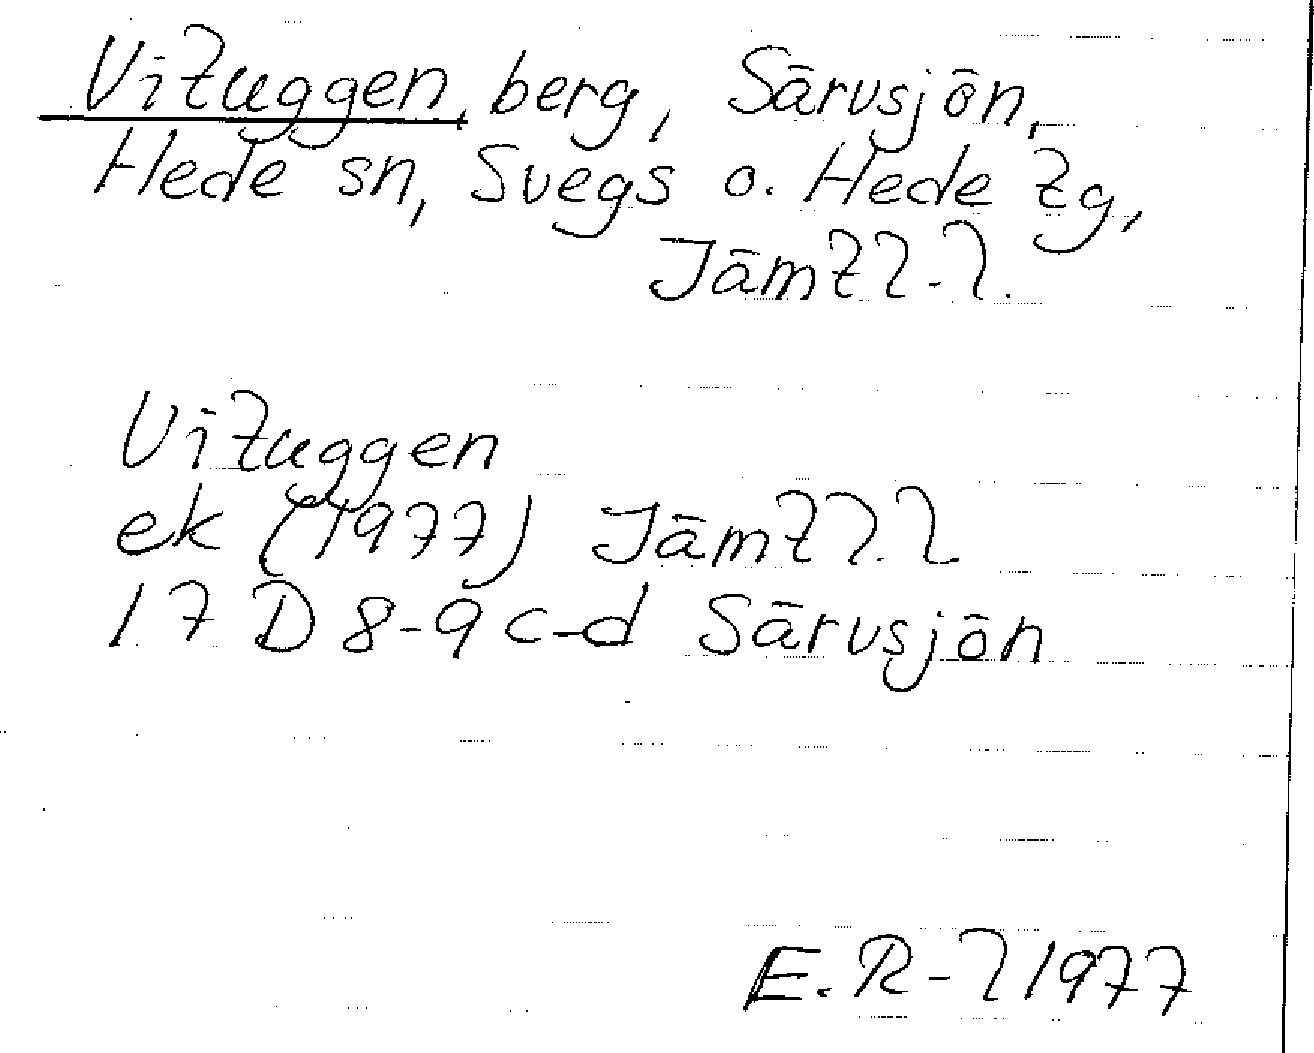 Vituggen, berg, Särvsjön,
Hede sn, Svegs o. Hede tg,
Jämtl-l.
Vituggen
ek (1977) Jämtl.l.
17 D 8-9 c-d Särvsjön
E.R-l 1977